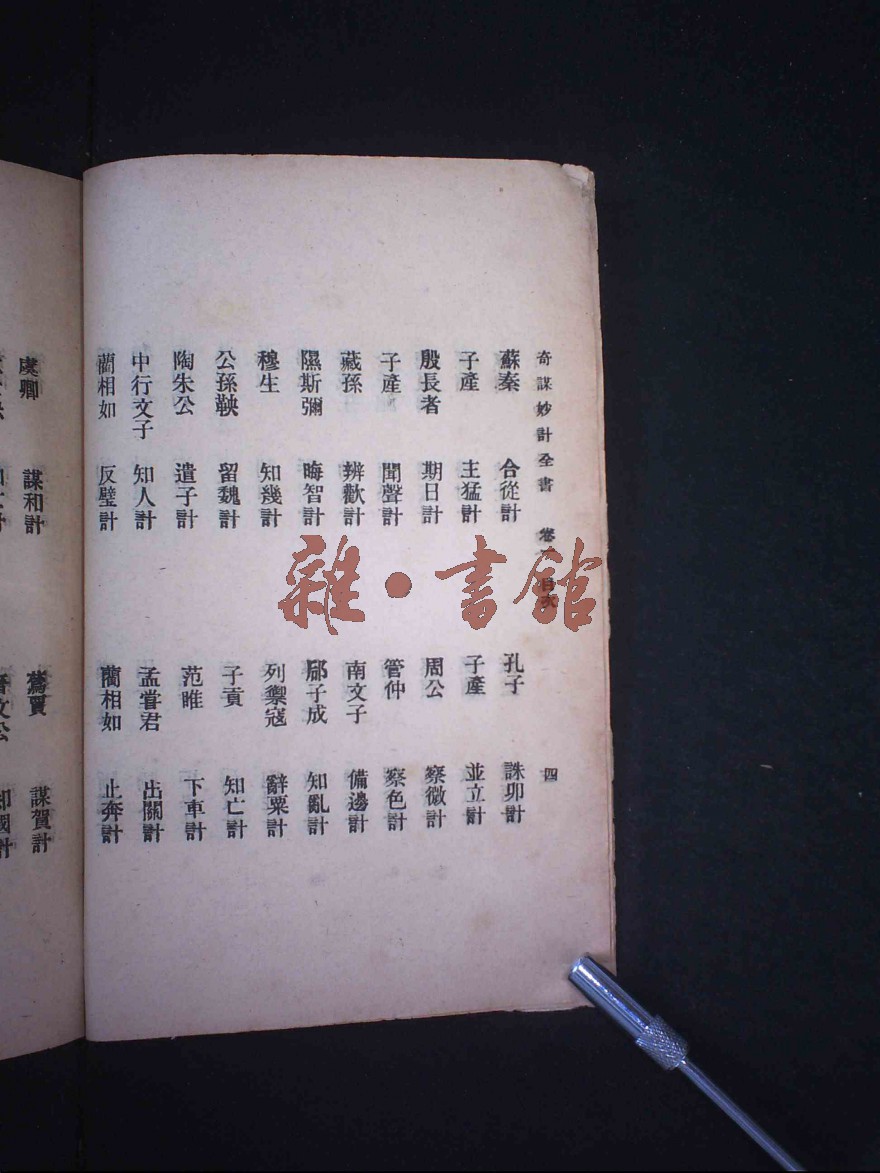 奇謀妙計全書 卷一 目次 四
蘇秦 合從計 孔子 誅卯計
子產 主猛計 子產 並立計
殷長者 期日計 周公 察微計
子產 聞聲計 管仲 察色計
臧孫 辨歡計 南文子 備邊計
隰斯彌 晦智計 郈子成 知亂計
穆生 知幾計 列禦寇 辭粟計
公孫鞅 留魏計 子貢 知亡計
陶朱公 遣子計 范雎 下車計
中行文子 知人計 孟嘗君 出關計
藺相如 反璧計 藺相如 止奔計
虞卿 謀和計 蒍賈 謀賀計
雜·書館